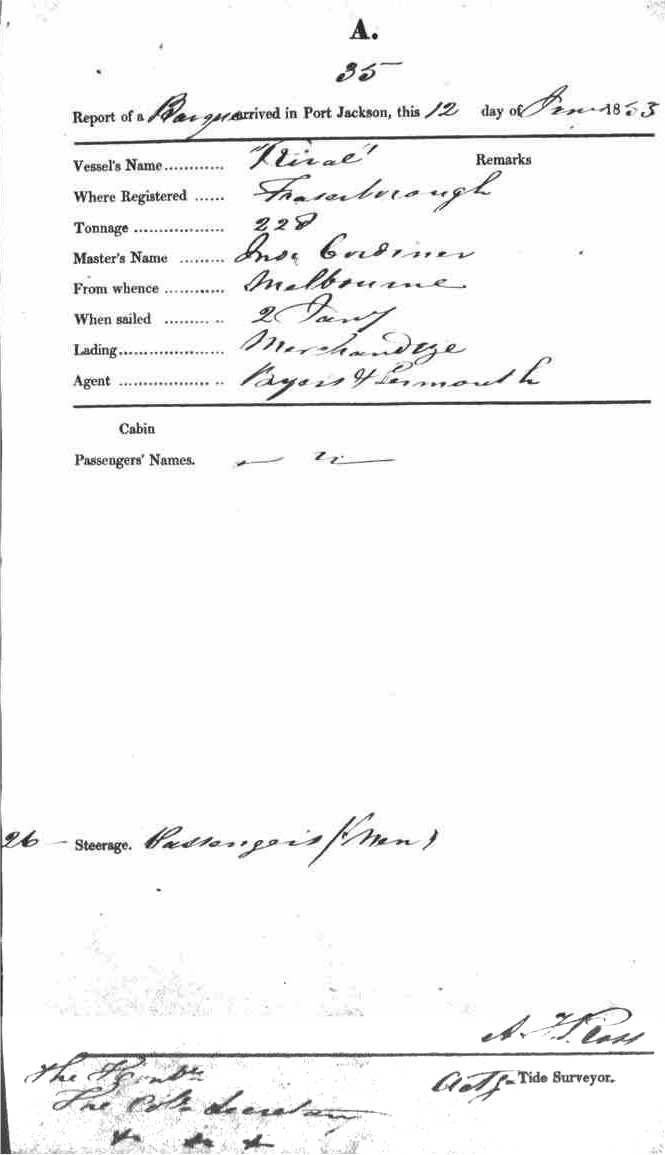 A.
35
Report of a Barque arrived in Port Jackson, this 12 day of Jan 1853
Vessel's Name ............ 'Rival' Remarks
Where Registered ...... Fraserborough
Tonnage .................. 228
Master's Name ......... Jno.
From whence ............ Melbourne
When sailed .......... .. 2 Jany
Lading..................... Merchandize
Agent .................. .. Byers & Learmouth
Cabin
Passengers' Names.
26 - Steerage. Passengers (Men)
A. Ross
Actg Tide Surveyor.
The Honble
The Col. Secretary